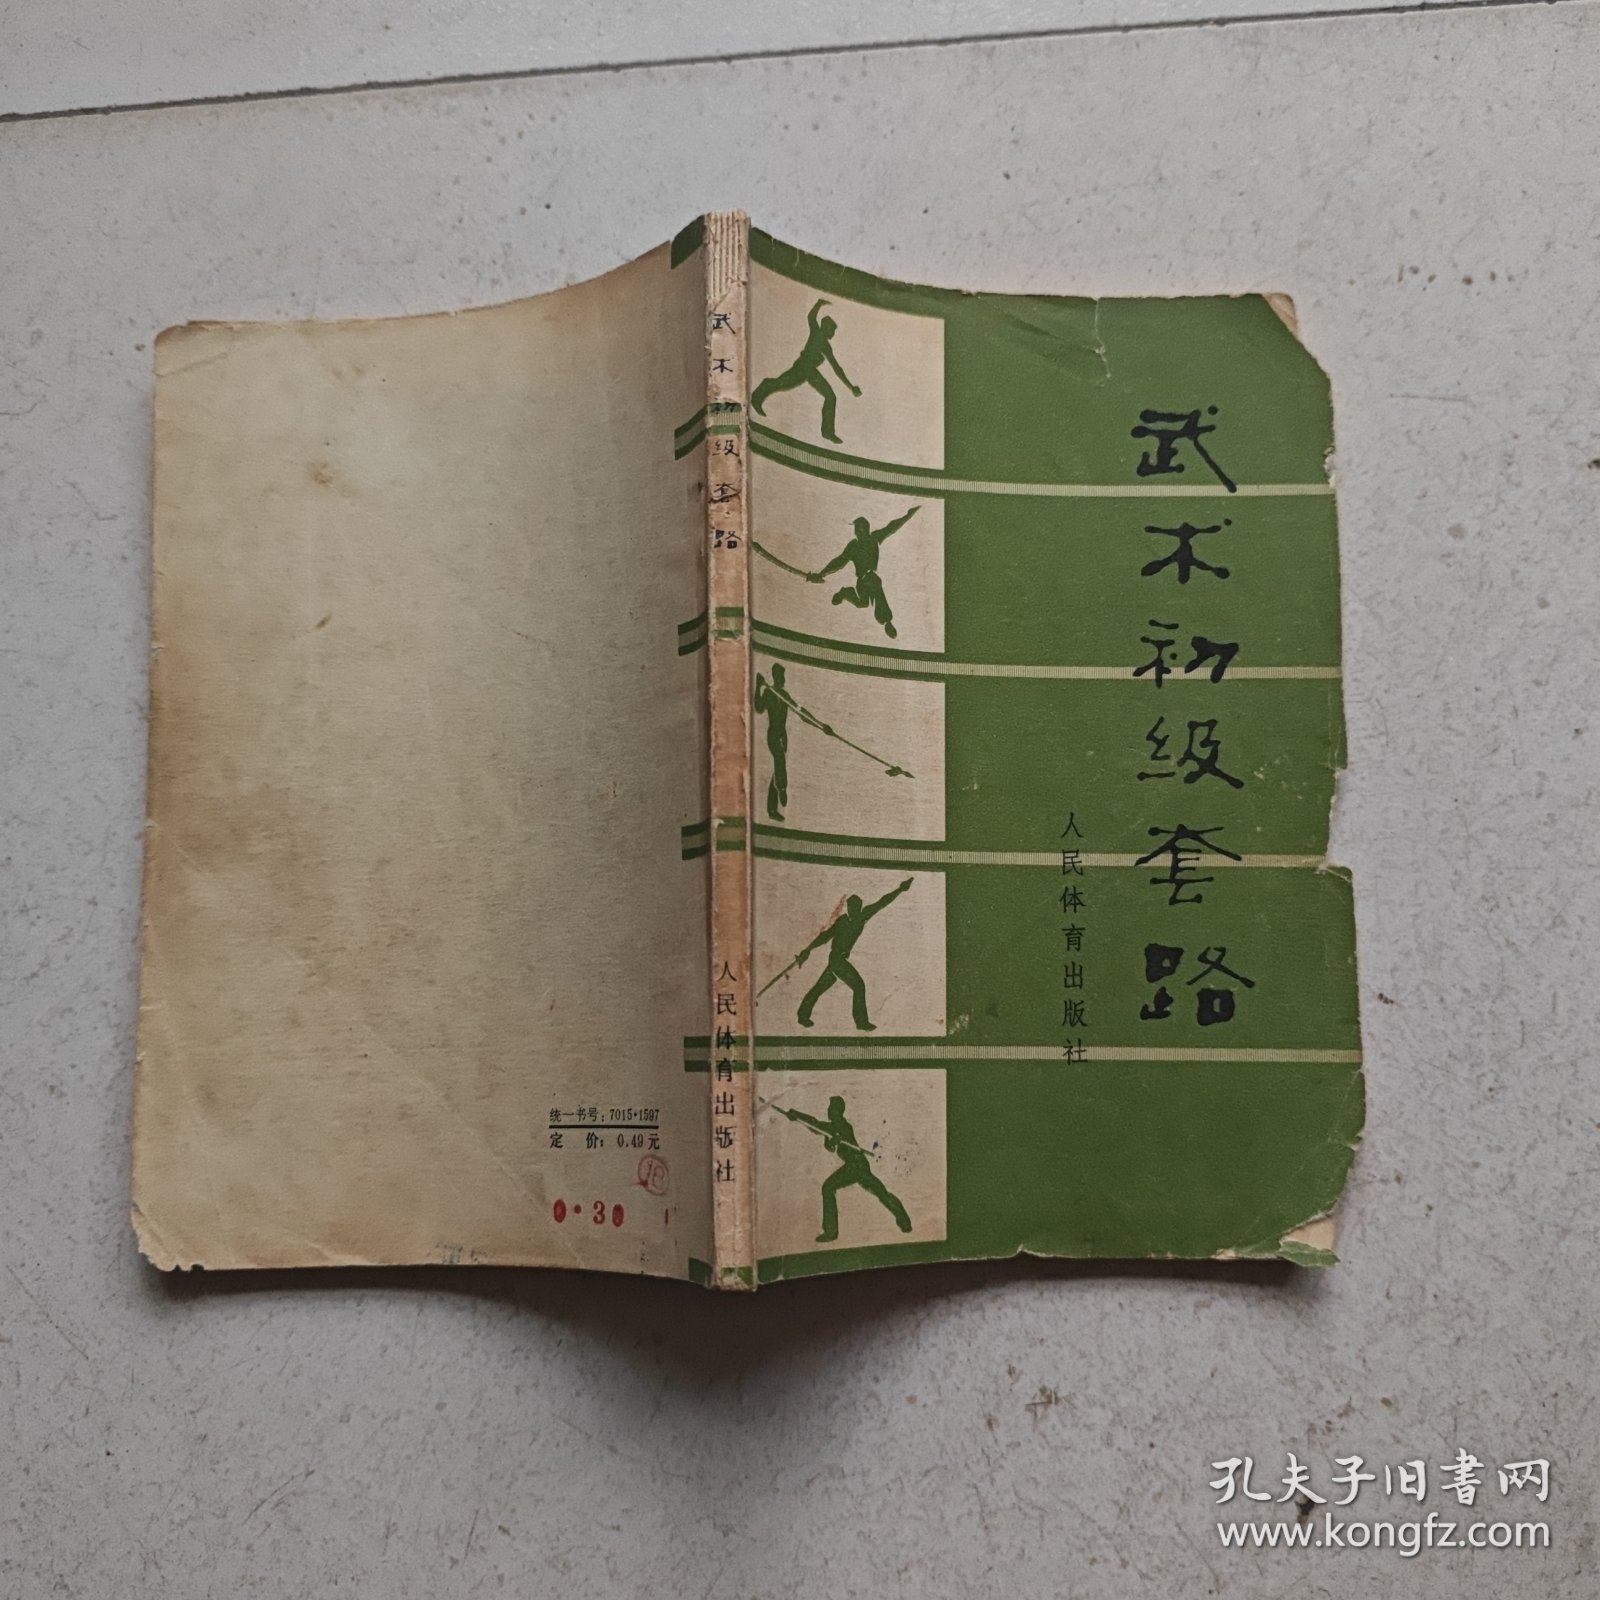 武术初级套路
人民体育出版社
武术初级套路
人民体育出版社
统一书号：7015·1597
定 价：0.49元
18
0·30
孔夫子旧书网
www.kongfz.com